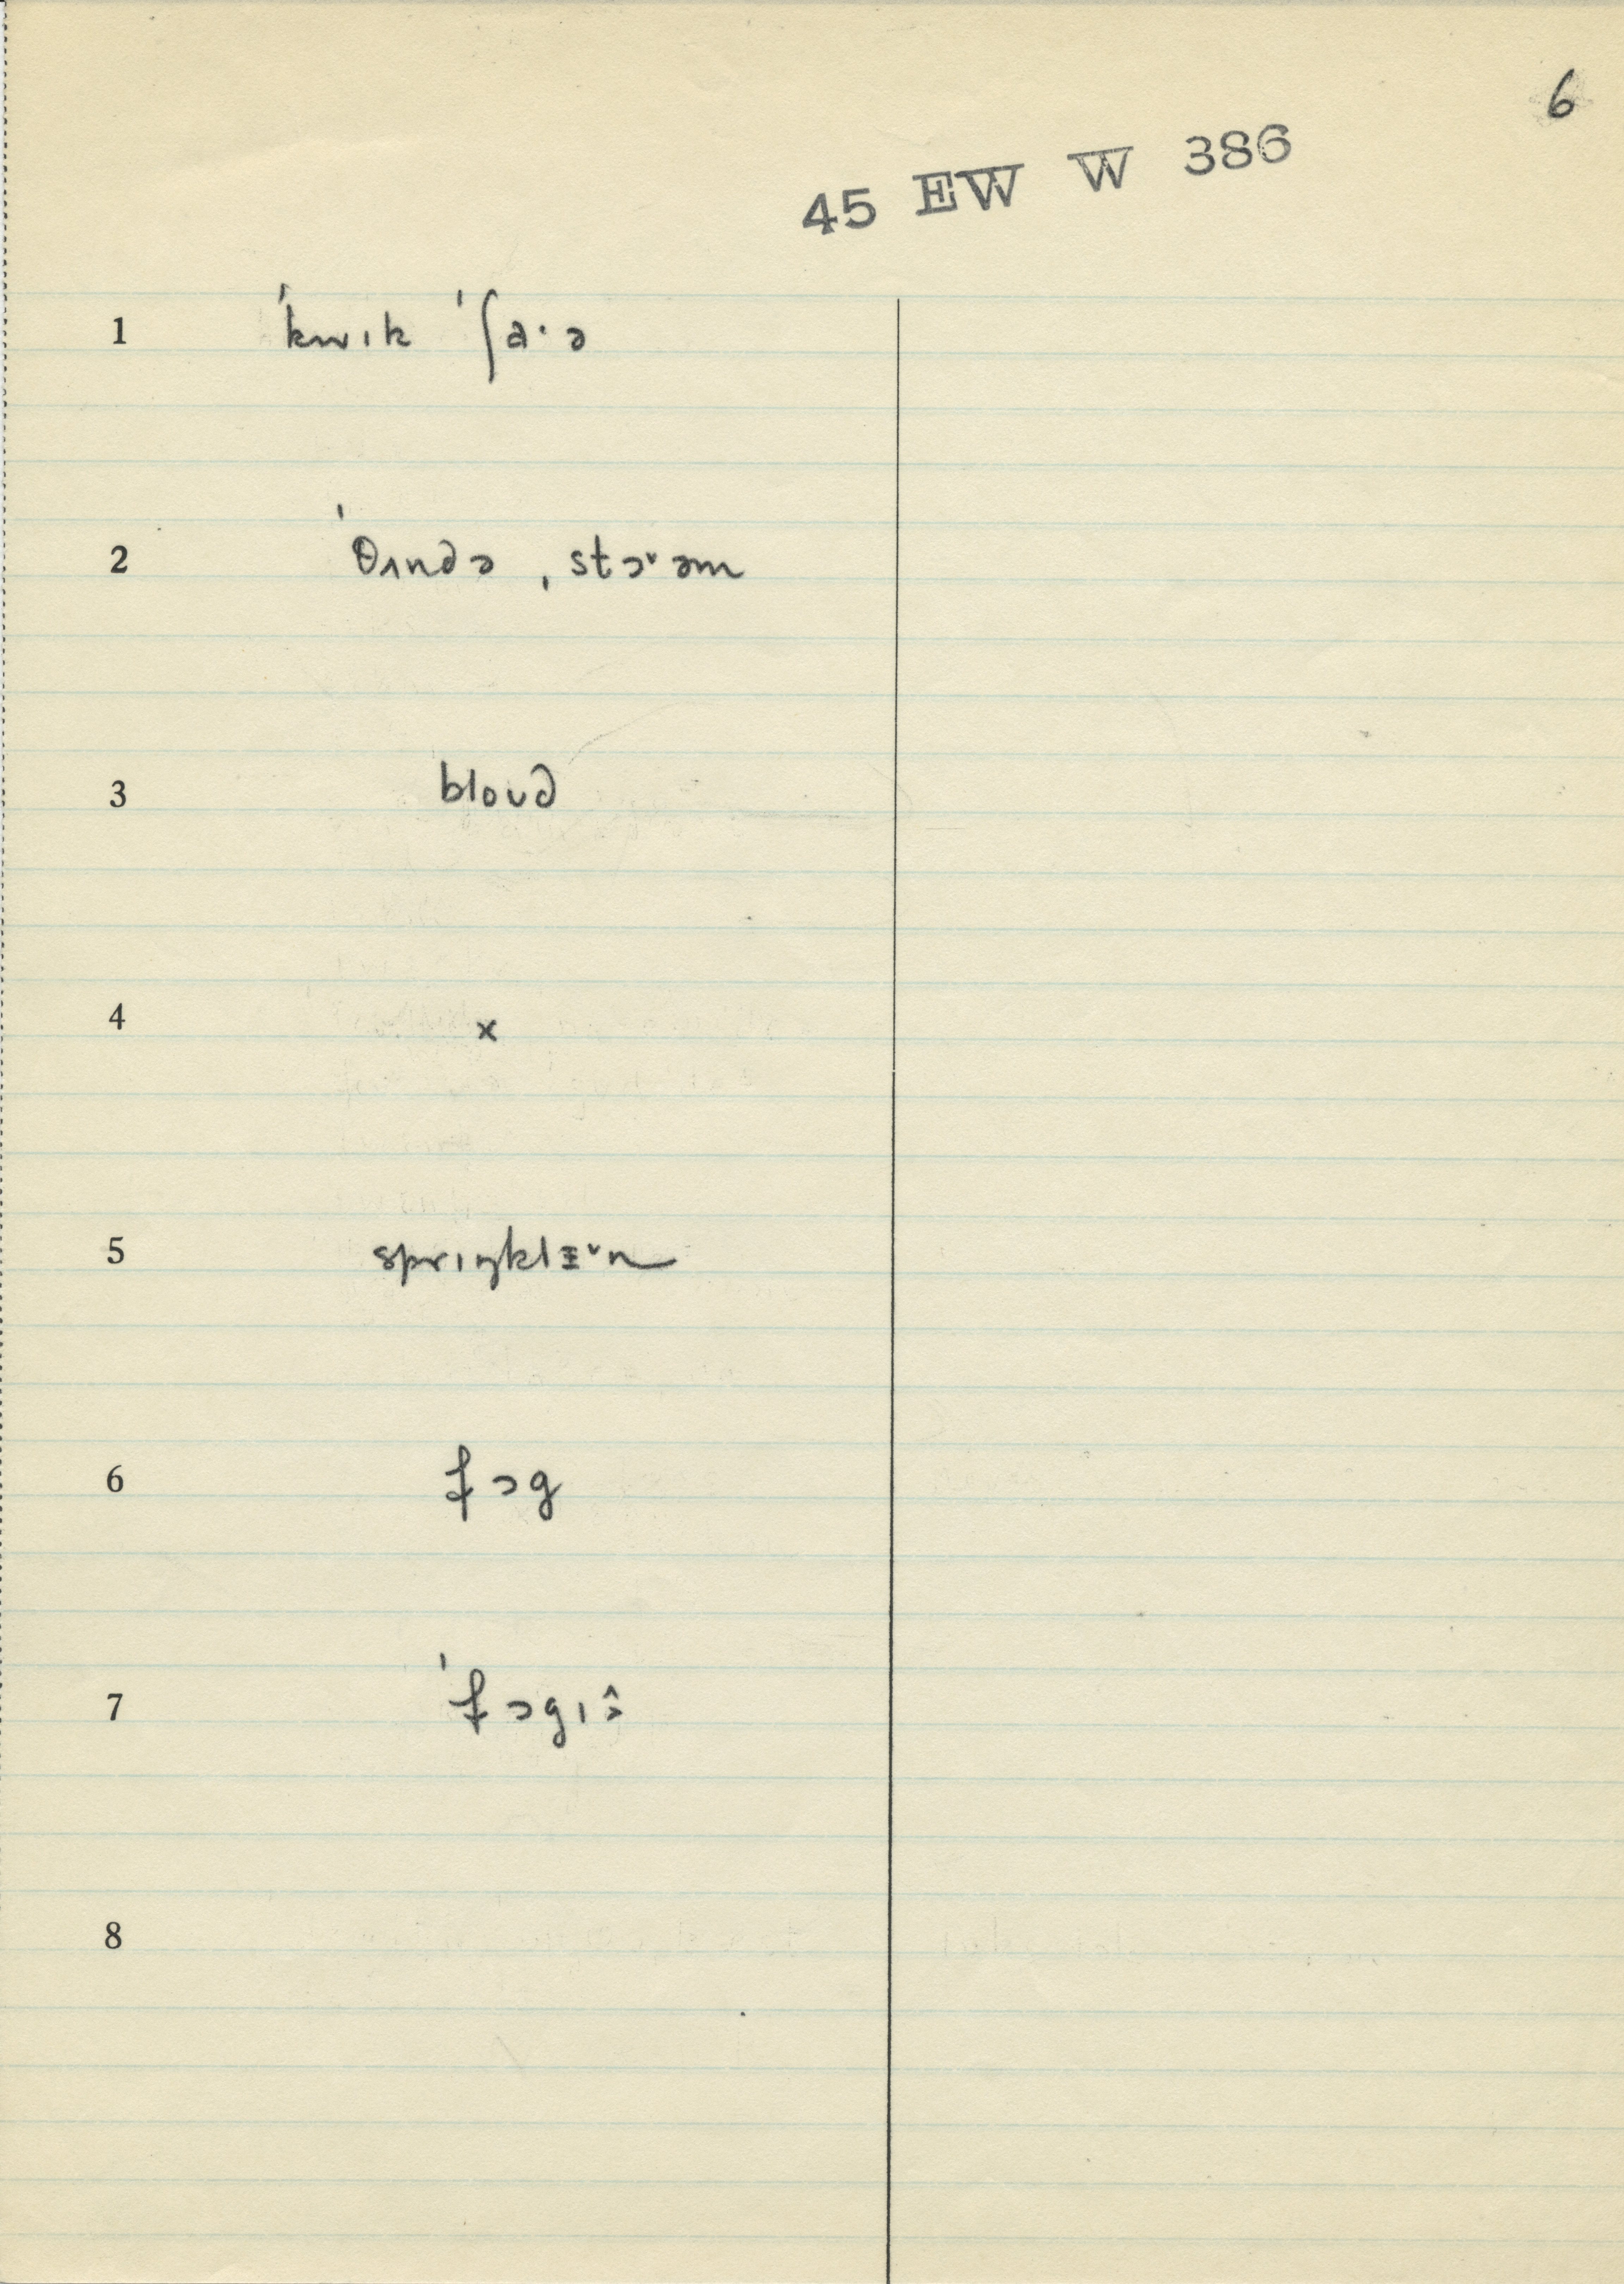 6
45 EW W 386
1 ˈkwɪk ˈʃaˑə
2 ˈθʌndə ˌstɔ˅əm
3 bloʊd
4 x
5 sprɪŋklɪ˅n
6 fɔg
7 ˈfɔgɪ
8